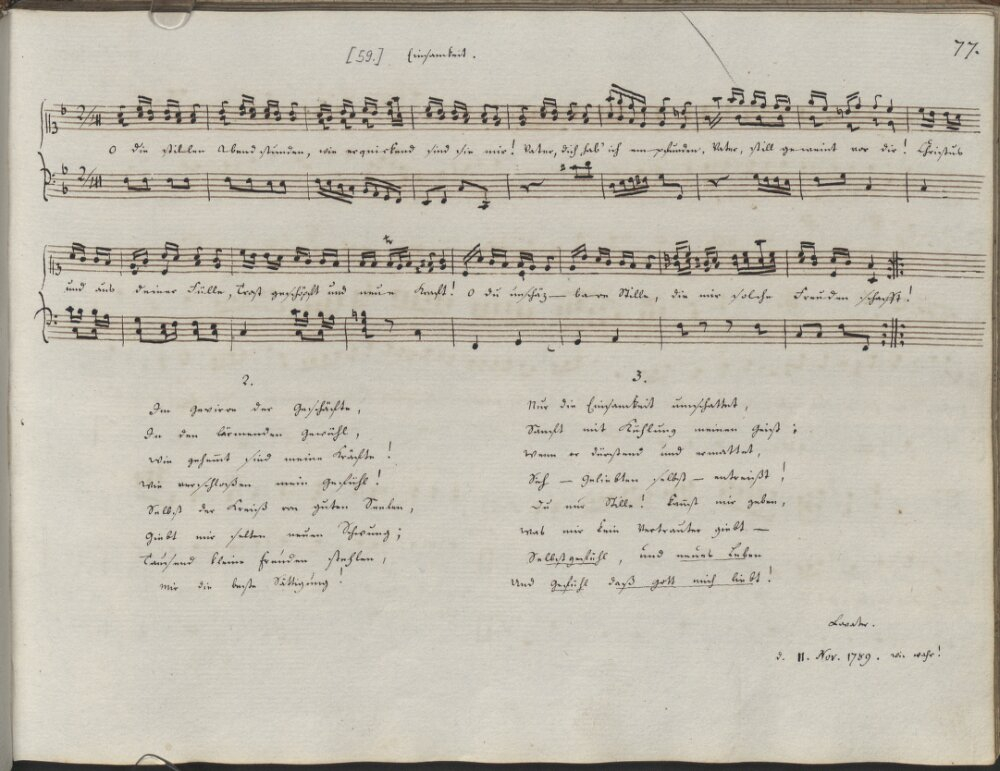 77.
[59.] Einsamkeit.
O die stillen Abendstunden, wie erquickend sind sie mir! Vater, dich hab' ich empfunden, Vater, still geweint vor dir! Christus
und aus deiner Fülle, Trost geschöpft und neue Kraft! O du unschäz- bare Stille, die mir solche Freuden schafft!
2.
Im Gewirre der Geschäfte,
In den lärmenden Gewühl,
Wie gehemt sind meine Kräfte!
Wie verschloßen mein Gefühl!
Selbst der Kreiß von guten Seelen,
Giebt mir selten neuen Schwung;
Tausend kleine Freuden stehlen,
Mir die beste Sättigung!
3.
Nur die Einsamkeit umschattet,
Sanft mit Kühlung meinen Geist;
Wenn er dürstend und ermattet,
Sich – Geliebten selbst – entreißt!
Du nur Stille! kannst mir geben,
Was mir kein Vertrauter giebt –
Selbstgefühl, und neues Leben
Und Gefühl daß Gott mich liebt!
Lavater.
d. 11. Nov. 1789. wie wahr!